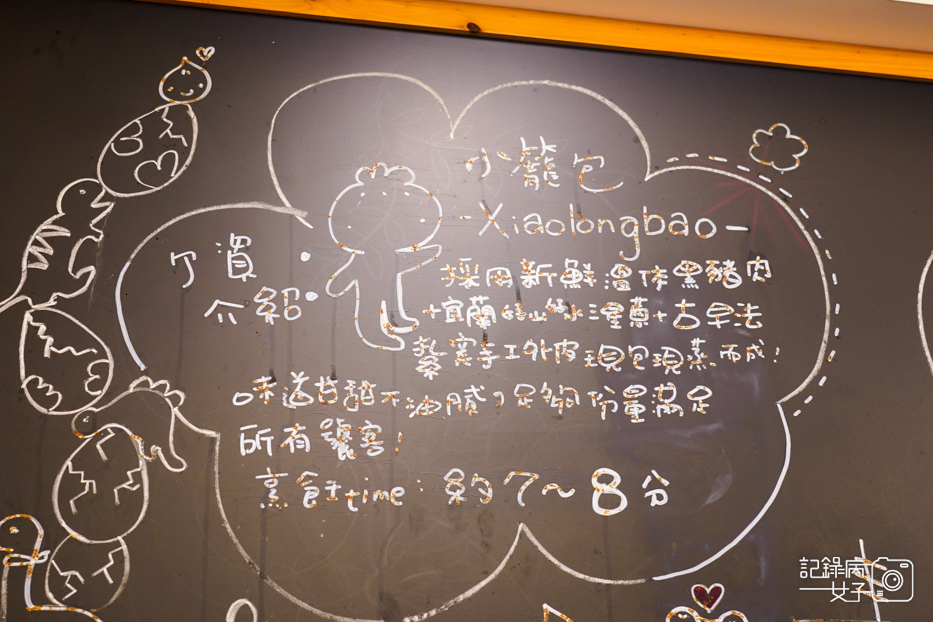 小籠包
-Xiaolongbao-
ㄗ資：
介紹
採用新鮮溫体黑豬肉
+宜蘭的山泉水灌蔥+古早法
紮實手工外皮現包現蒸而成!
味道甘甜不油膩,足夠份量滿足
所有饕客!
烹飪time:約7~8分
記錄病
女子